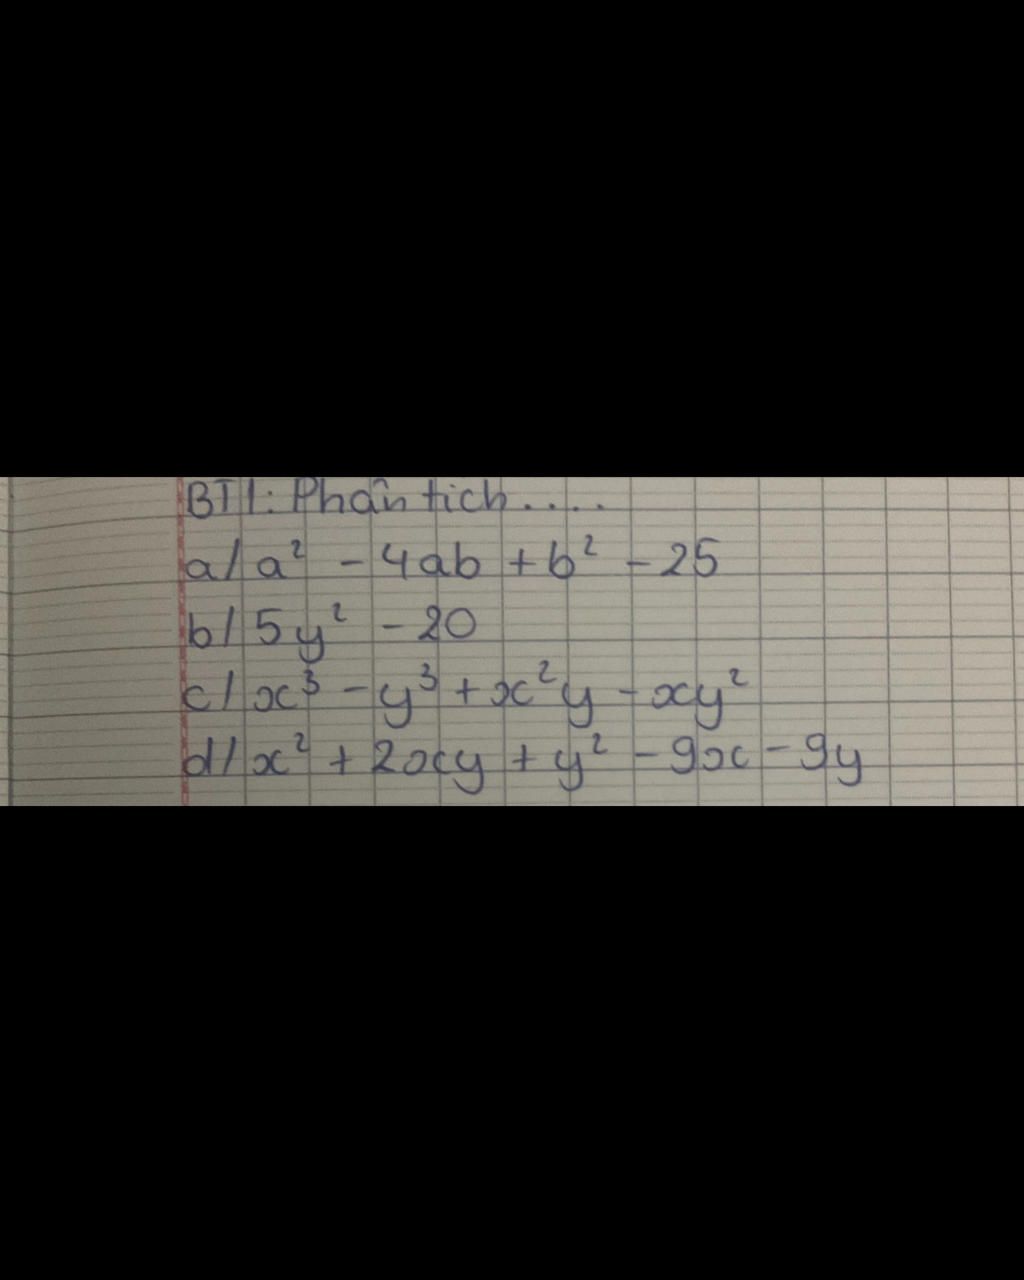 BT1: Phân tich....
a/ a² - 4ab + b² - 25
b/ 5y² - 20
c/ x³ - y³ + x²y - xy²
d/ x² + 2xy + y² - 9x - 9y